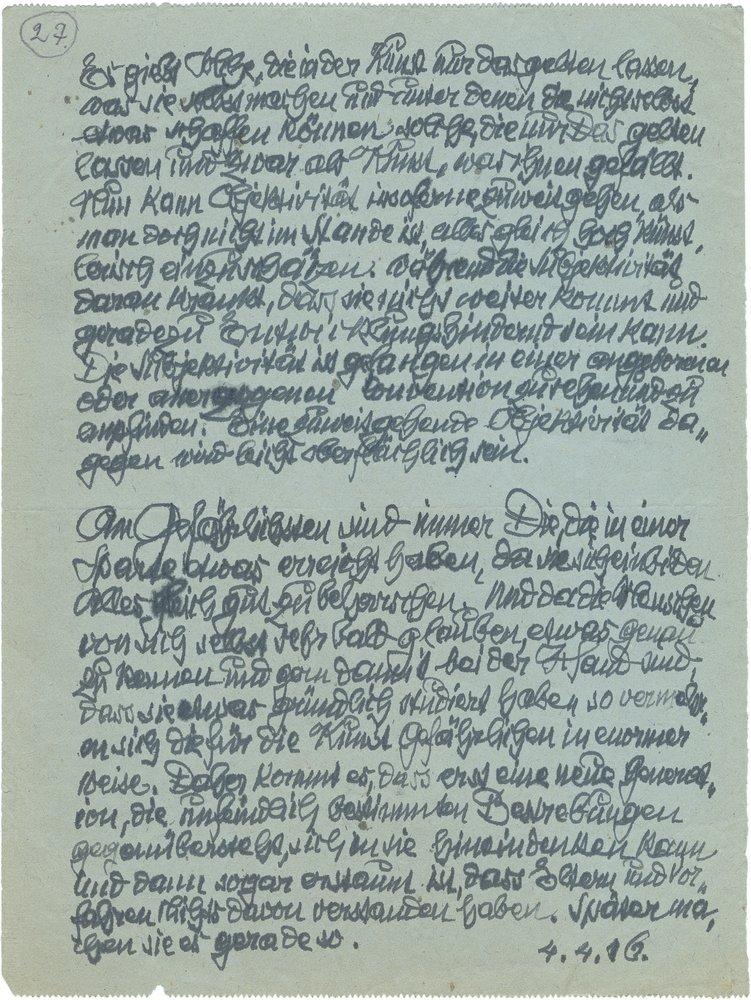 27.
Es giebt Solche, die in der Kunst nur das gelten lassen,
was sie selbst machen und unter denen die nicht selbst
etwas schaffen können solche, die nur Das gelten
lassen und zwar als Kunst, was ihnen gefällt.
Nun kann Objektivität insoferne zuweit gehen, als
man doch nicht im Stande ist, alles gleich hoch künst„
lerisch einzuschätzen. Während die Subjektivität
daran krankt, dass sie nicht weiter kommt und
geradezu Entwicklungshindernd sein kann.
Die Subjektivität ist gefangen in einer angeborenen
oder anerzogenen Convention zu sehen und zu
empfinden. Eine zuweitgehende Objektivität da„
gegen wird leicht oberflächlich sein.
Am Gefährlichsten sind immer Die, die in einer
Sparte etwas erreicht haben, da sie sich einbilden
Alles gleich gut zu beherrschen. Und da die Menschen
von sich selbst sehr bald glauben, etwas genau
zu kennen und gern damit bei der Hand sind,
dass sie etwas gründlich studiert haben so vermehr„
en sich die für die Kunst Gefährlichen in enormer
weise. Daher kommt es, dass erst eine neue Generat„
ion, die unfeindlich bestimmten Bestrebungen
gegenübersteht, sich in sie hineindenken kann
und dann sogar erstaunt ist, dass Eltern und Vor„
fahren nichts davon verstanden haben. Später ma„
chen sie es gerade so.
4.4.16.